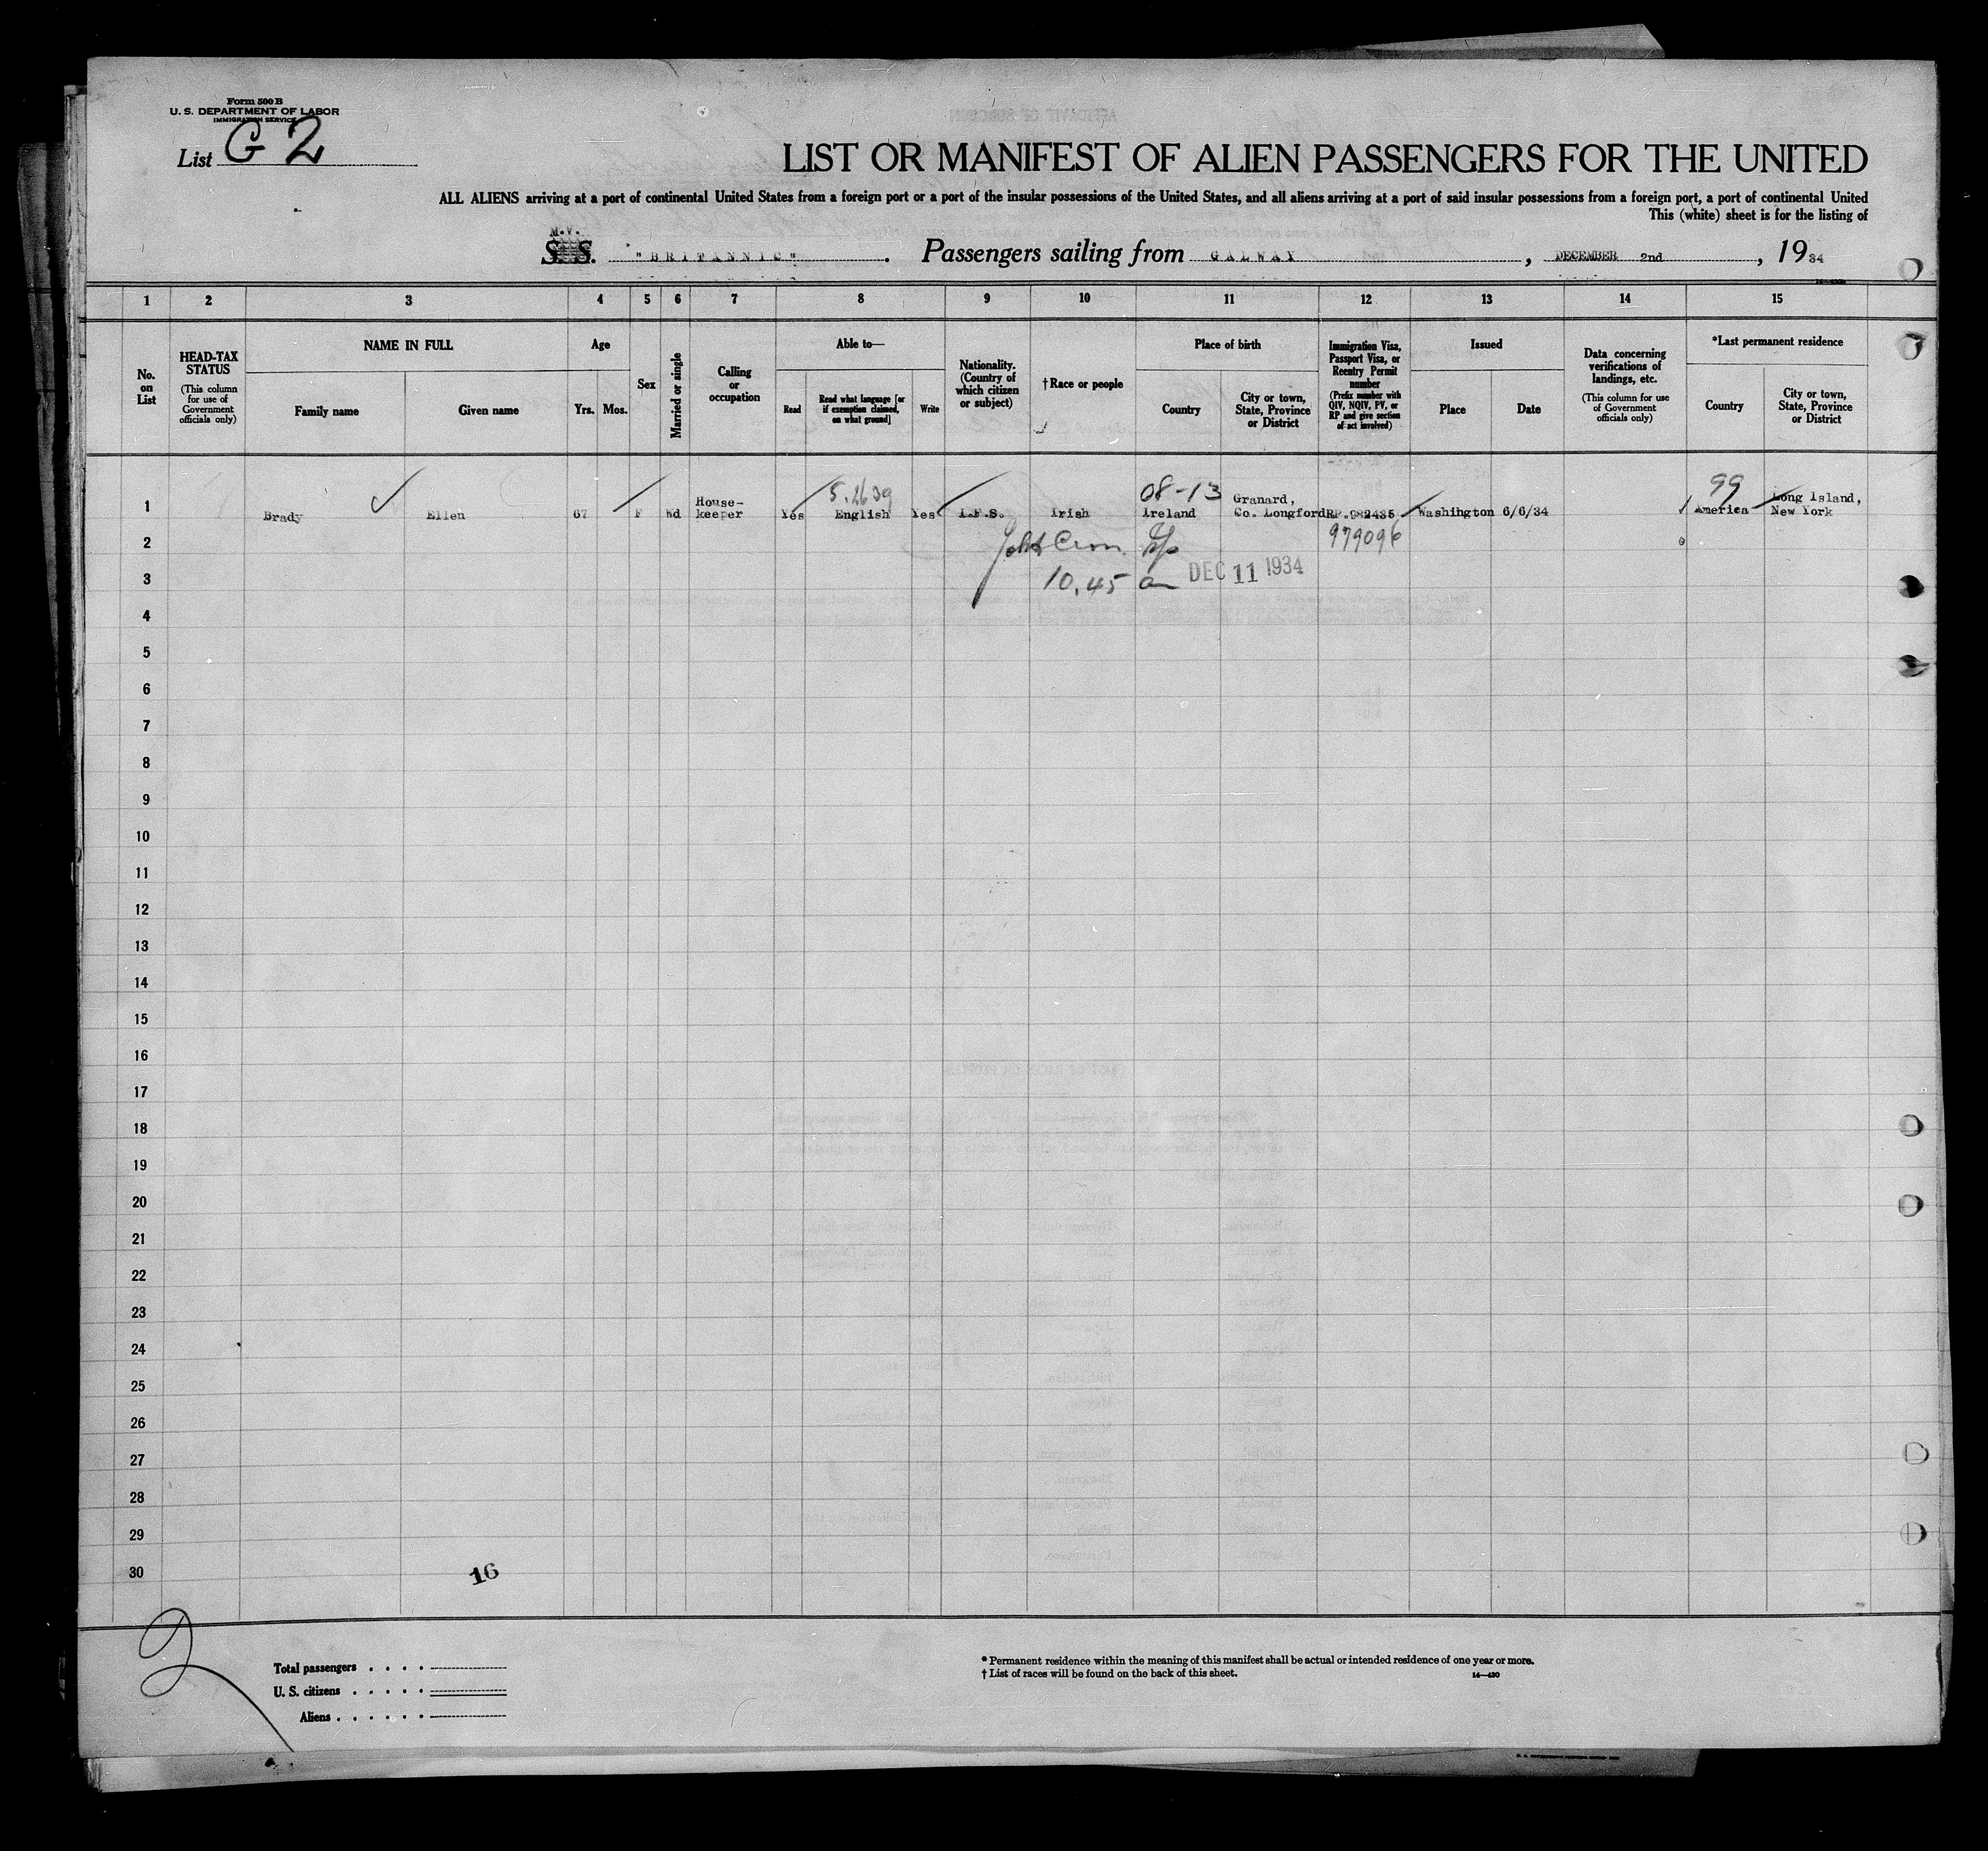 Form 500 B
U. S. DEPARTMENT OF LABOR
IMMIGRATION SERVICE
List G 2
LIST OR MANIFEST OF ALIEN PASSENGERS FOR THE UNITED
ALL ALIENS arriving at a port of continental United States from a foreign port or a port of the insular possessions of the United States, and all aliens arriving at a port of said insular possessions from a foreign port, a port of continental United
This (white) sheet is for the listing of
M.V.
S. S. "BRITANNIC". Passengers sailing from GALWAY, DECEMBER 2nd, 1934
1 2 3 4 5 6 7 8 9 10 11 12 13 14 15
No. on List
HEAD-TAX STATUS
(This column for use of Government officials only)
NAME IN FULL
Family name
Given name
Age
Yrs. Mos.
Sex
Married or single
Calling or occupation
Able to—
Read
Read what language [or if exemption claimed, on what ground]
Write
Nationality. (Country of which citizen or subject)
† Race or people
Place of birth
Country
City or town, State, Province or District
Immigration Visa, Passport Visa, or Reentry Permit number
(Prefix number with QIV, NQIV, PV, or RP and give section of act involved)
Issued
Place
Date
Data concerning verifications of landings, etc.
(This column for use of Government officials only)
*Last permanent residence
Country
City or town, State, Province or District
5.2639 08-13 99
1 Brady Ellen 67 F Wd House-keeper Yes English Yes I.F.S. Irish Ireland Granard, Co. Longford RP.982435 Washington 6/6/34 America Long Island, New York
2 979096
3 10.45 am DEC 11 1934
4
5
6
7
8
9
10
11
12
13
14
15
16
17
18
19
20
21
22
23
24
25
26
27
28
29
30
16
2
Total passengers . . . .
U. S. citizens . . . . .
Aliens . . . . . .
* Permanent residence within the meaning of this manifest shall be actual or intended residence of one year or more.
† List of races will be found on the back of this sheet.
14—430